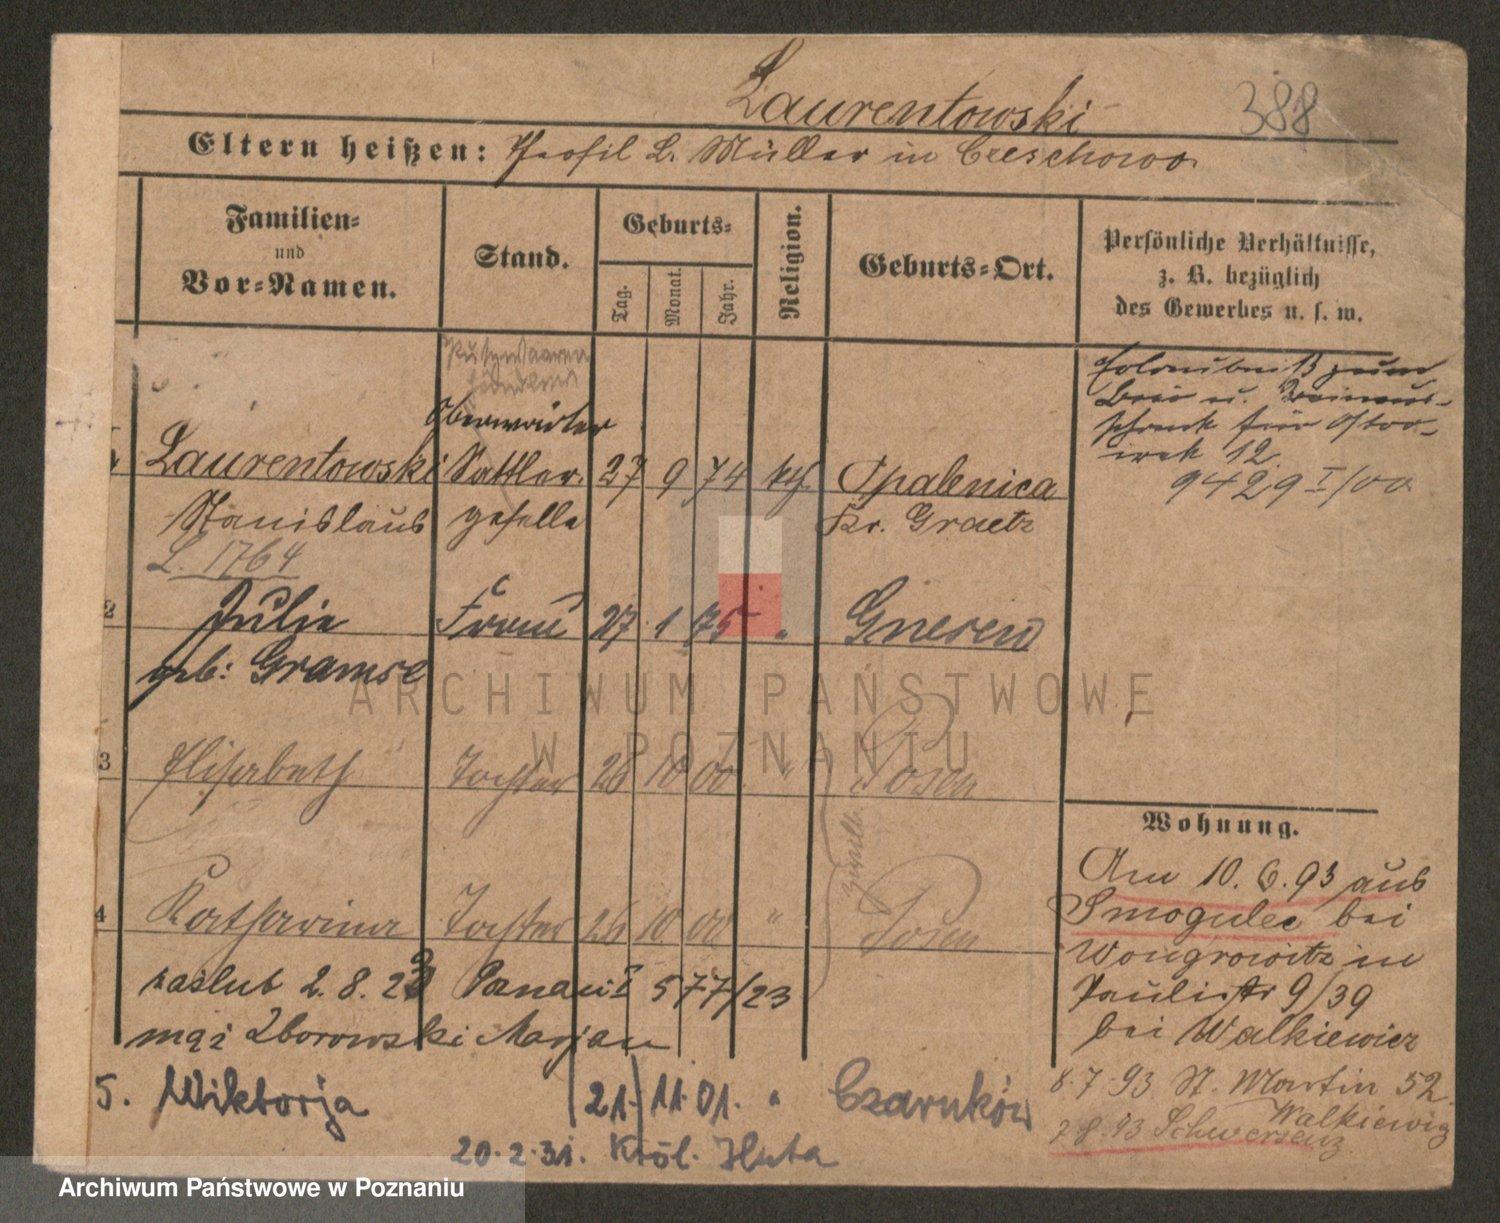 Laurentowski
388
Eltern heißen: Theofil L. Müller in Czeschowo
Familien-
und
Vor-Namen.
Stand.
Geburts-
Tag.
Monat.
Jahr.
Religion.
Geburts-Ort.
Persönliche Verhältnisse,
z. B. bezüglich
des Gewerbes u. s. w.
Putzwaaren
händlerin
Oberwärter
Laurentowski Sattler- 27 9 74 kth. Opalenica
Stanislaus geselle Kr. Graetz
L. 1764
Erlaubniß zum
Bier u. Branntwein-
schank für
12.
9429 I/00
2 Julie Frau 27 1 75 " Gnesen
geb: Gramse
3 Elisabeth Tochter 26 10 00 " Posen
4 Katharina Tochter 26 10 00 " Posen
zaślub 2.8.23 Poznań I 577/23
mąż Zborowski Marjan
5. Wiktorja 21. 11. 01. " Czarnków
20.2.31. Król. Huta
Wohnung.
Am 10.6.93 aus
Smogulec bei
Wongrowitz in
Paulistr 9/39
bei Walkiewicz
8.7.93 St. Martin 52
Walkiewicz
7.8.93 Schwersenz
ARCHIWUM PAŃSTWOWE
W POZNANIU
Archiwum Państwowe w Poznaniu